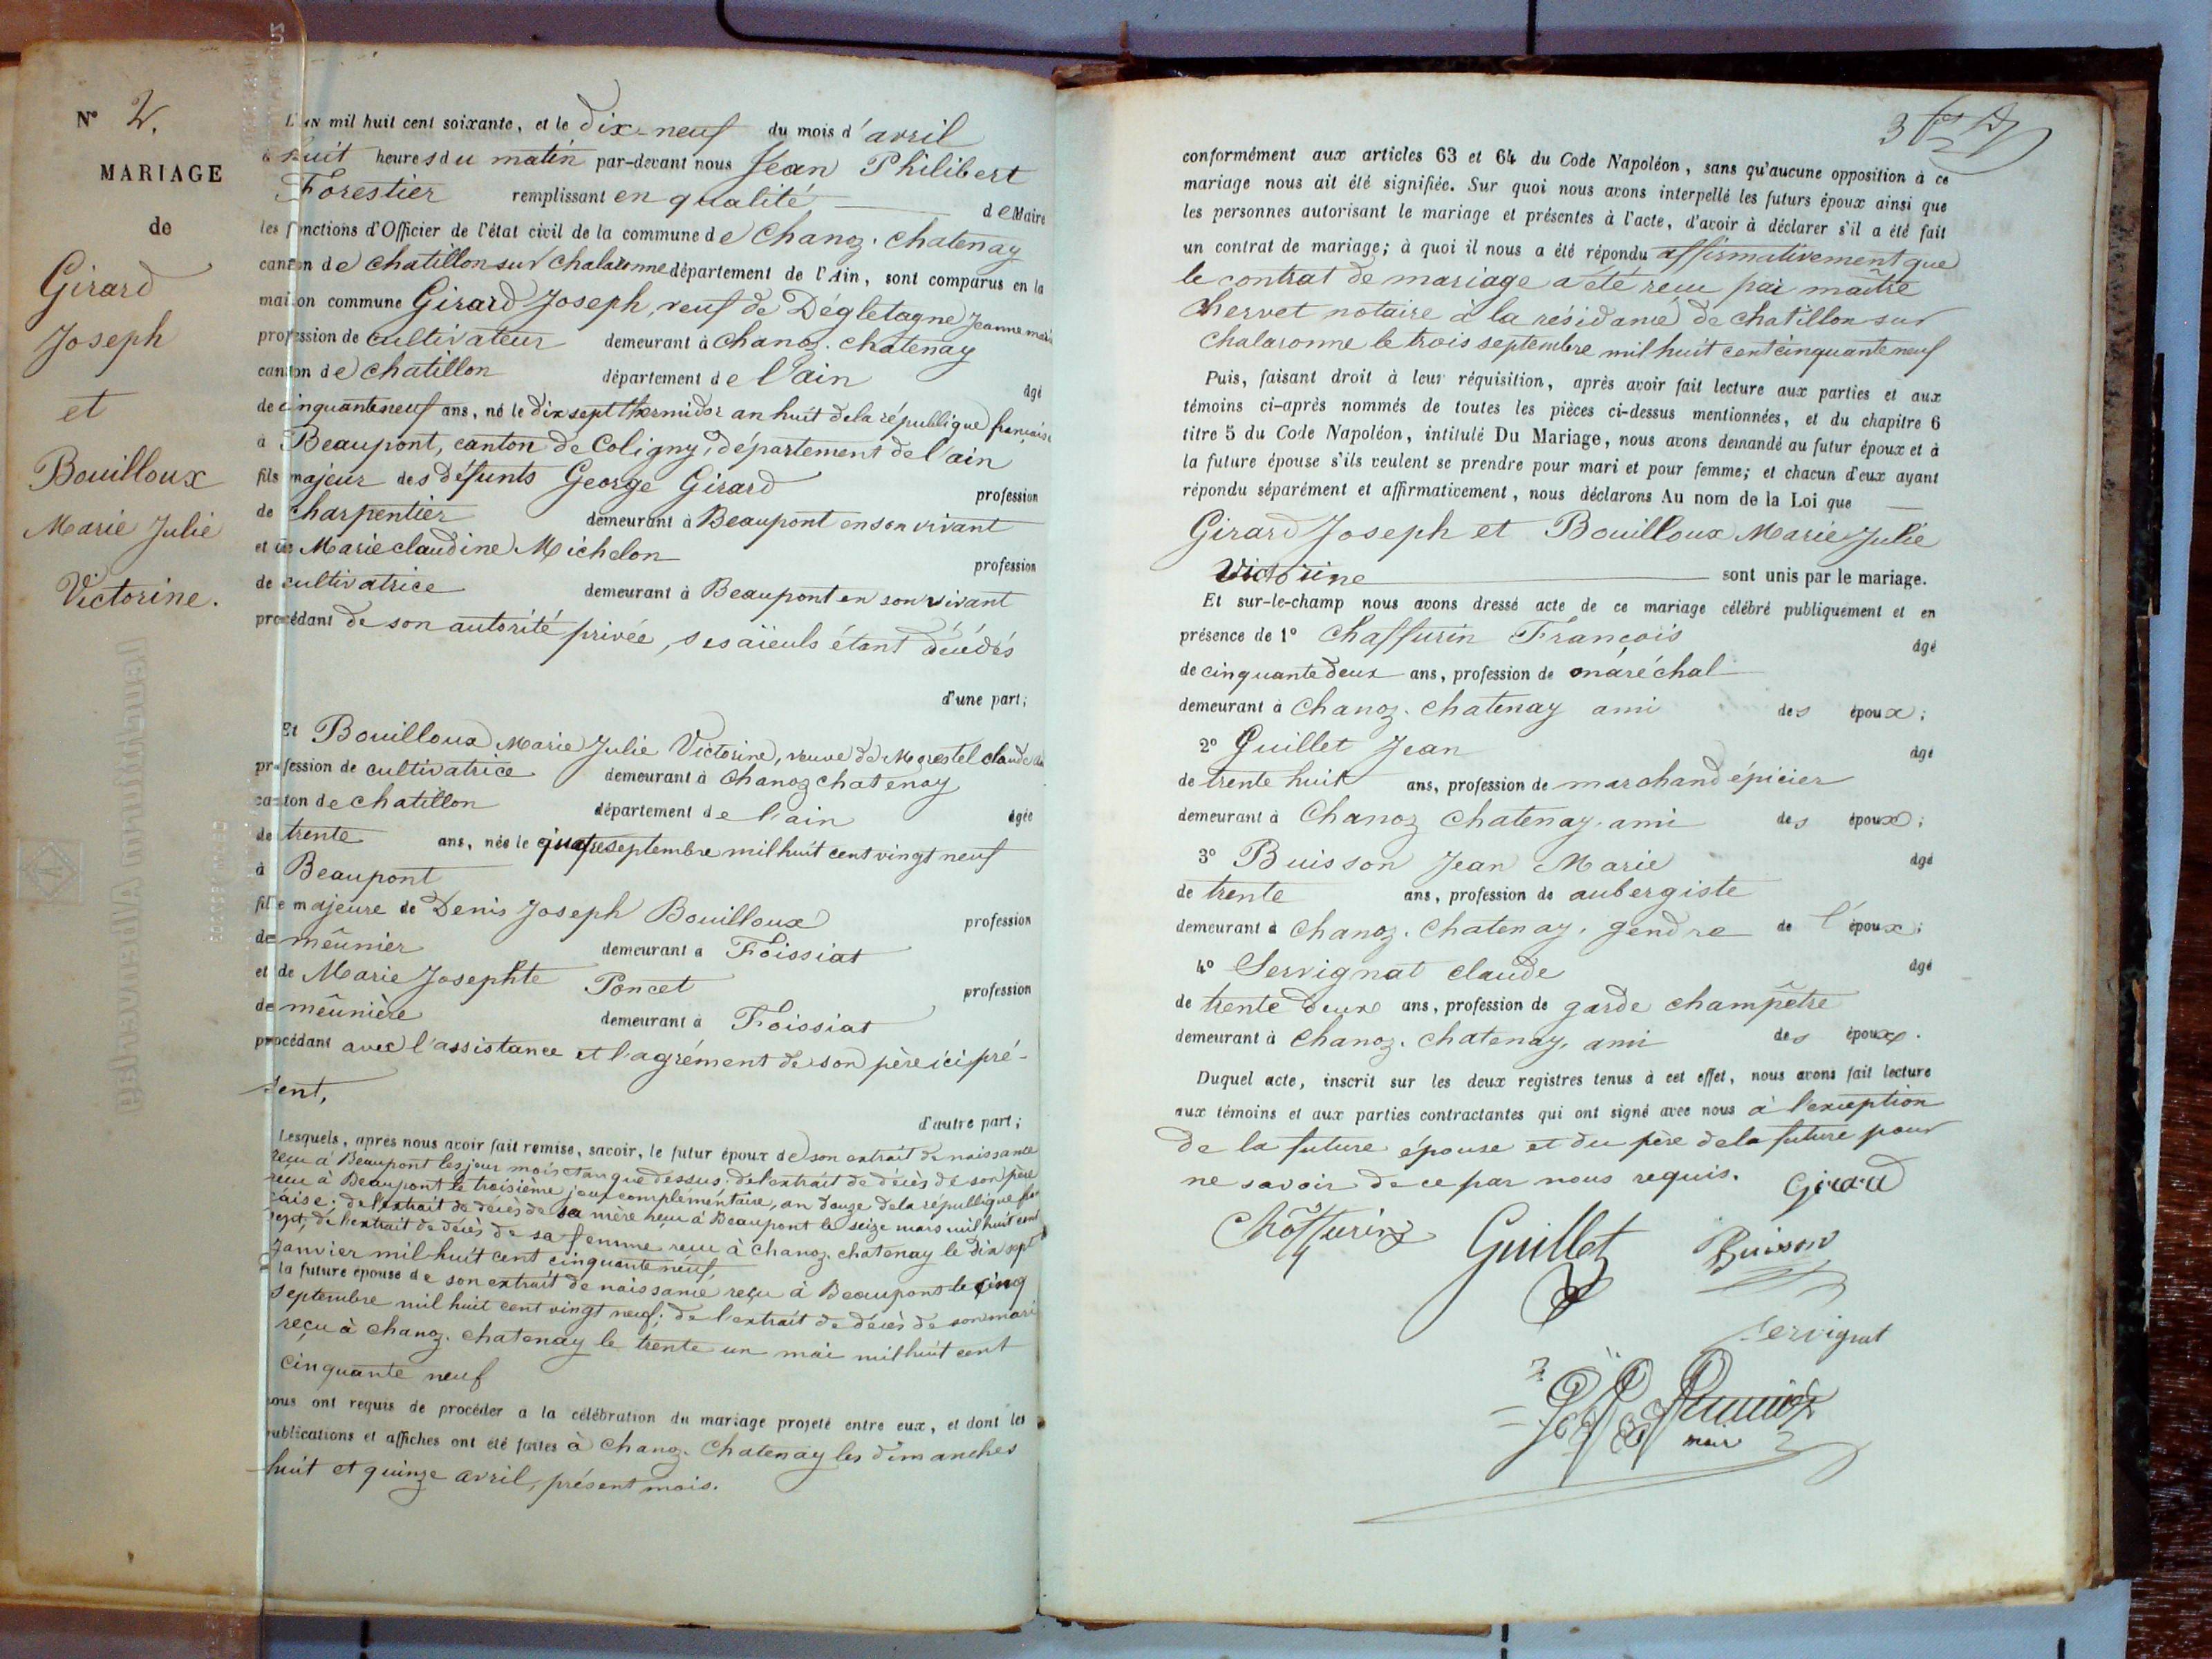 N° 2.
MARIAGE
de
Girard
Joseph
et
Bouilloux
Marie Julie
Victorine.
L'AN mil huit cent soixante, et le dix-neuf du mois d'avril
à huit heures du matin par-devant nous Jean Philibert
Forestier remplissant en qualité de Maire
les fonctions d'Officier de l'état civil de la commune de Chanoz-Chatenay
canton de Chatillon sur Chalaronne département de l'Ain, sont comparus en la
maison commune Girard Joseph, veuf de Dégletagne Jeanne marie
profession de cultivateur demeurant à Chanoz-Chatenay
canton de Chatillon département de l'ain âgé
de cinquante neuf ans, né le dix sept thermidor an huit de la république française
à Beaupont, canton de Coligny, département de l'ain
fils majeur des défunts George Girard profession
de charpentier demeurant à Beaupont en son vivant
et de Marie claudine Michelon profession
de cultivatrice demeurant à Beaupont en son vivant
procédant de son autorité privée, ses aïeuls étant décédés
d'une part;
Et Bouilloux Marie Julie Victorine, veuve de Morestel claude
profession de cultivatrice demeurant à Chanoz chatenay
canton de chatillon département de l'ain âgée
de trente ans, née le quatre septembre mil huit cent vingt neuf
à Beaupont
fille majeure de Denis Joseph Bouilloux profession
de mêunier demeurant à Foissiat
et de Marie Josephte Poncet profession
de mêunière demeurant à Foissiat
procédant avec l'assistance et l'agrément de son père ici pré-
sent,
d'autre part;
Lesquels, après nous avoir fait remise, savoir, le futur époux de son extrait de naissance
reçu à Beaupont les jour mois et an que dessus; de l'extrait de décès de son père
reçu à Beaupont le troisième jour complémentaire, an douze de la république fran
caise; de l'extrait de décès de sa mère reçu à Beaupont le seize mars mil huit cent
sept, de l'extrait de décès de sa femme reçu à Chanoz-chatenay le dix sept
Janvier mil huit cent cinquante neuf,
la future épouse de son extrait de naissance reçu à Beaupont le cinq
septembre mil huit cent vingt neuf; de l'extrait de décès de son mari
reçu à Chanoz-chatenay le trente un mai mil huit cent
cinquante neuf
nous ont requis de procéder à la célébration du mariage projeté entre eux, et dont les
publications et affiches ont été faites à Chanoz-Chatenay les dimanches
huit et quinze avril, présent mois.
3
conformément aux articles 63 et 64 du Code Napoléon, sans qu'aucune opposition à ce
mariage nous ait été signifiée. Sur quoi nous avons interpellé les futurs époux ainsi que
les personnes autorisant le mariage et présentes à l'acte, d'avoir à déclarer s'il a été fait
un contrat de mariage; à quoi il nous a été répondu affirmativement que
le contrat de mariage a été reçu par maître
hervet notaire à la résidance de chatillon sur
Chalaronne le trois septembre mil huit cent cinquante neuf
Puis, faisant droit à leur réquisition, après avoir fait lecture aux parties et aux
témoins ci-après nommés de toutes les pièces ci-dessus mentionnées, et du chapitre 6
titre 5 du Code Napoléon, intitulé Du Mariage, nous avons demandé au futur époux et à
la future épouse s'ils veulent se prendre pour mari et pour femme; et chacun d'eux ayant
répondu séparément et affirmativement, nous déclarons Au nom de la Loi que
Girard Joseph et Bouilloux Marie Julie
Victorine sont unis par le mariage.
Et sur-le-champ nous avons dressé acte de ce mariage célébré publiquement et en
présence de 1° Chaffurin François âgé
de cinquante deux ans, profession de maréchal
demeurant à Chanoz-Chatenay ami des époux;
2° Guillet Jean âgé
de trente huit ans, profession de marchand épicier
demeurant à Chanoz Chatenay, ami des époux;
3° Buisson Jean Marie âgé
de trente ans, profession de aubergiste
demeurant à Chanoz-Chatenay, gendre de l'époux;
4° Servignat claude âgé
de trente deux ans, profession de garde champêtre
demeurant à Chanoz-Chatenay, ami des époux.
Duquel acte, inscrit sur les deux registres tenus à cet effet, nous avons fait lecture
aux témoins et aux parties contractantes qui ont signé avec nous à l'exception
de la future épouse et du père de la future pour
ne savoir de ce par nous requis. Girard
Chaffurin Guillet Buisson
Servignat
mair